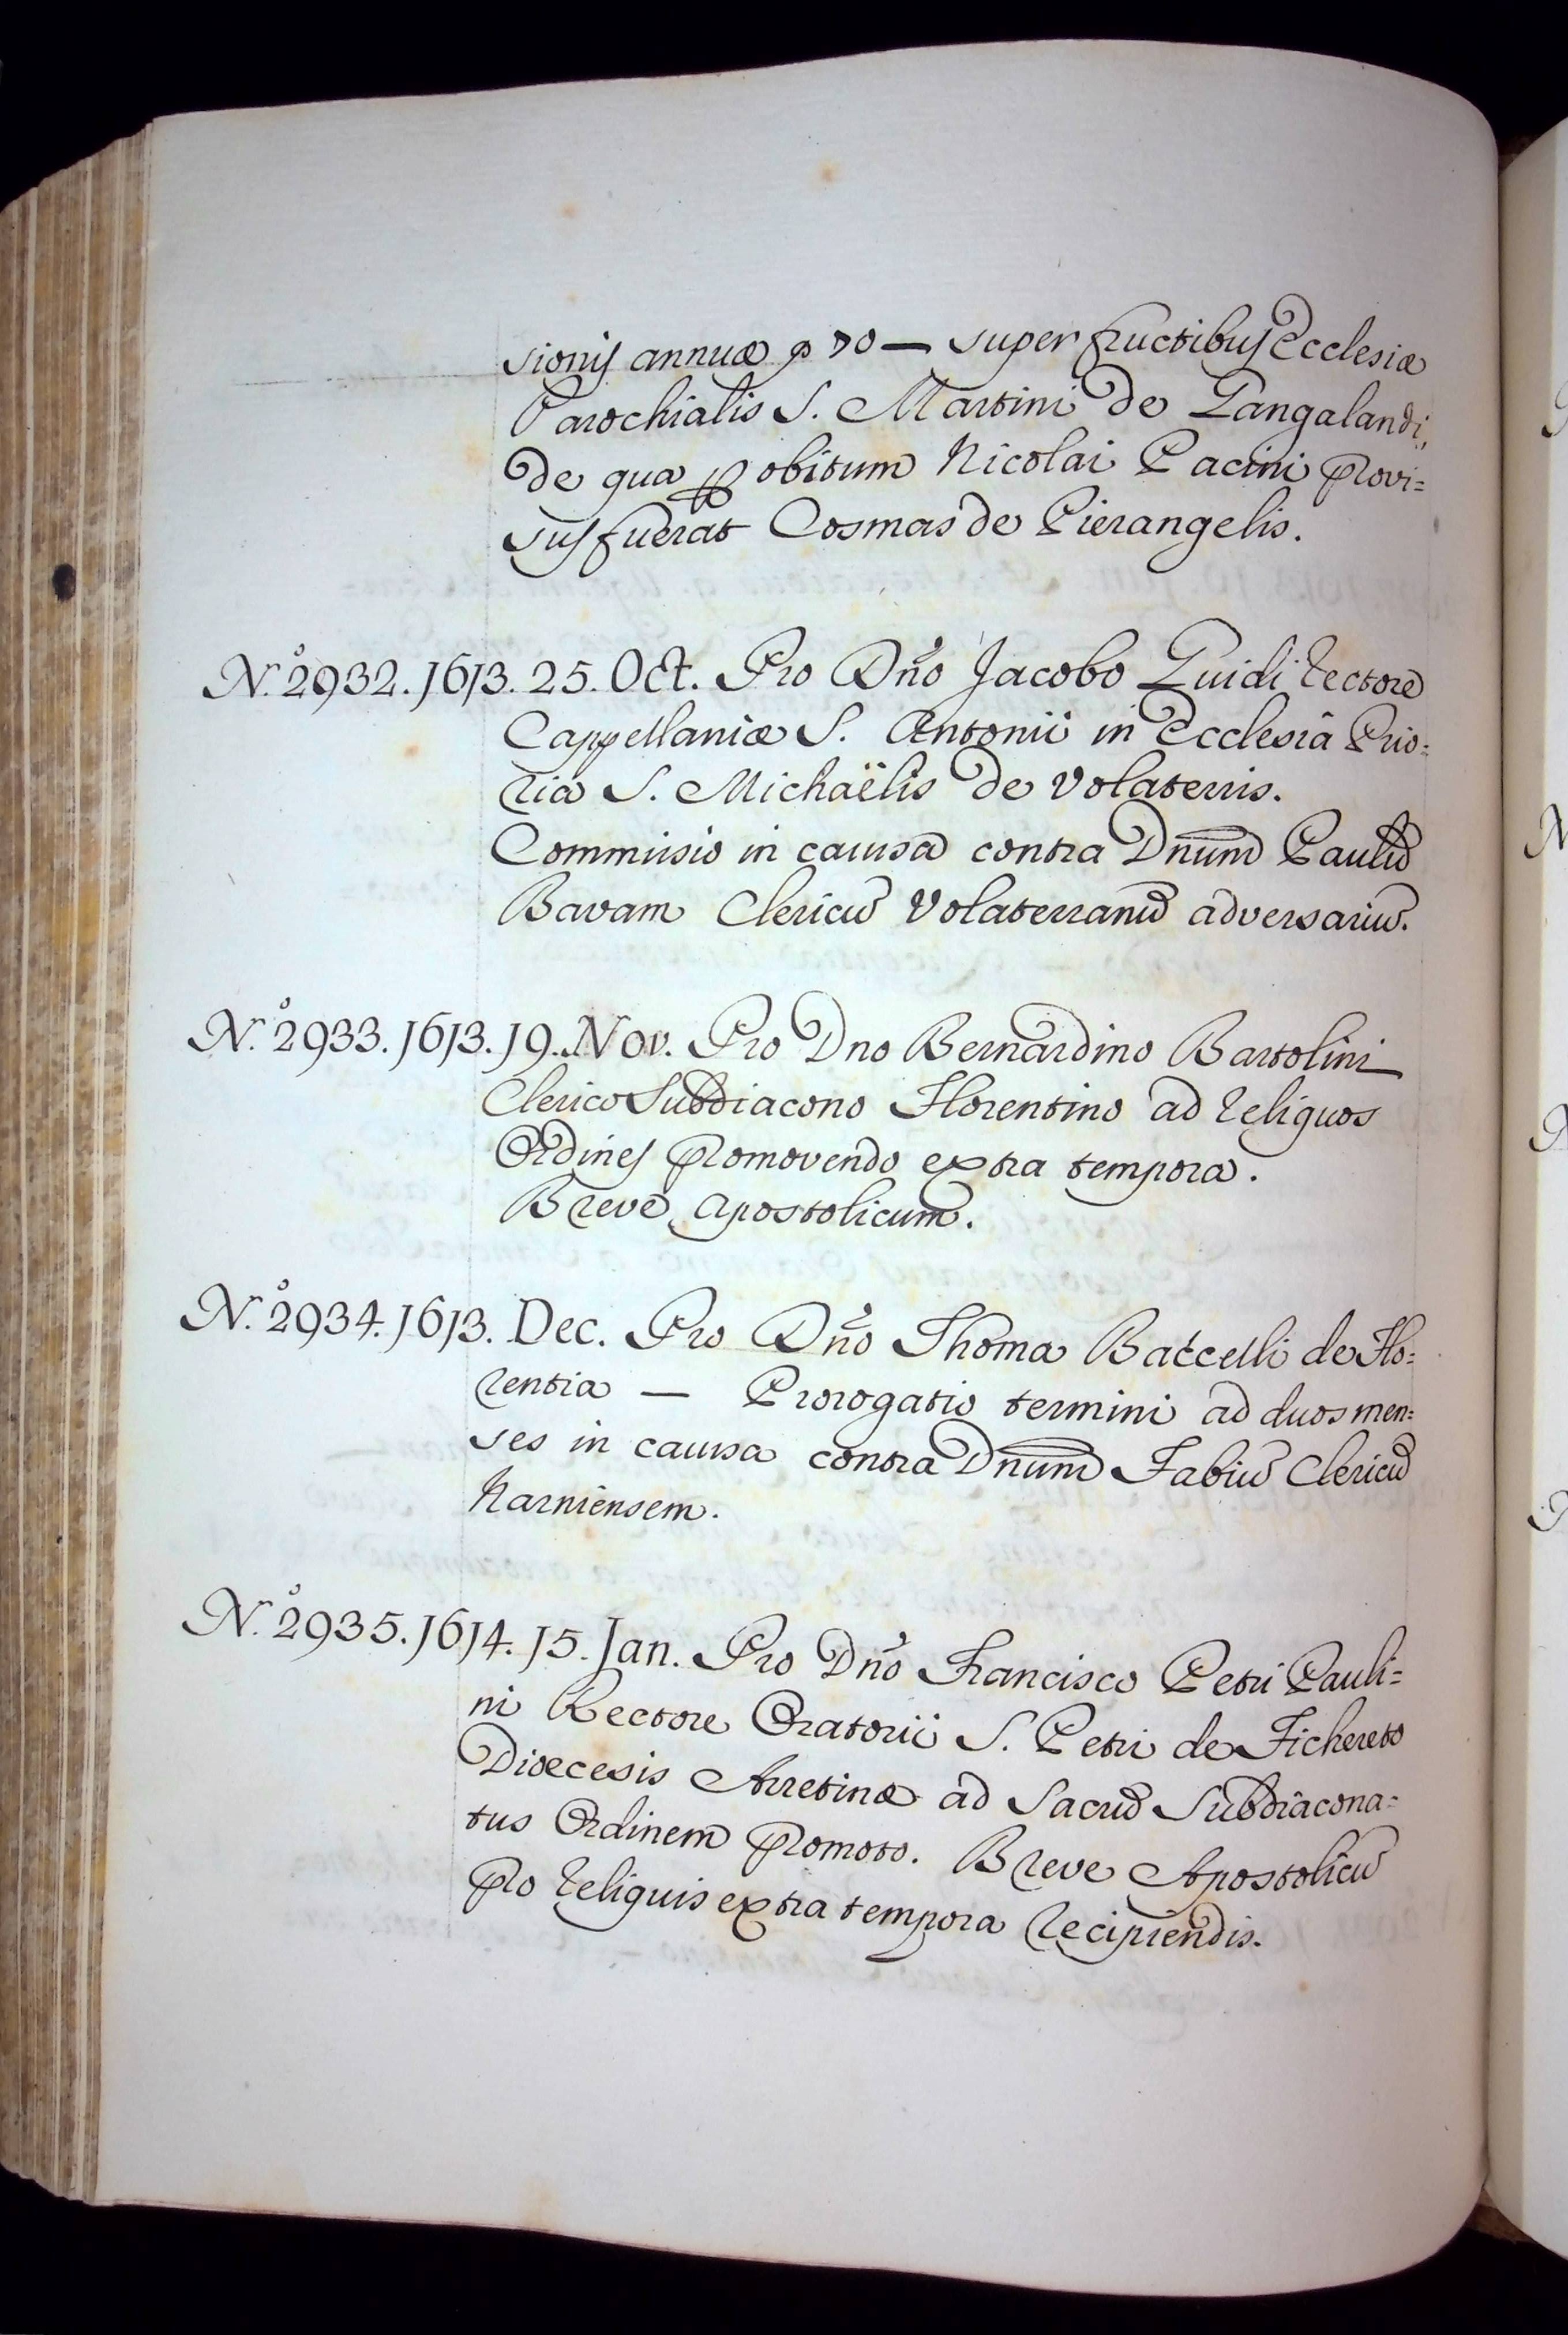 sionis annuæ p 70 — super fructibus Ecclesiæ
Parochialis S. Martini de Gangalandi,
de qua p obitum Nicolai Pacini provi=
sus fuerat Cosmas de Pierangelis.
N.º 2932. 1613. 25. Oct. Pro Dño Jacobo Guidi Rectore
Cappellaniæ S. Antonii in Ecclesiâ Prio=
ria S. Michaëlis de Volaterris.
Commissio in caussa contra Dnum Paulū
Bavam Clericū Volaterranū adversariū.
N.º 2933. 1613. 19. Nov. Pro Dno Bernardino Bartolini
Clerico Subdiacono Florentino ad reliquos
Ordines promovendo extra tempora.
Breve Apostolicum.
N.º 2934. 1613. Dec. Pro Dño Thoma Baccelli de Flo=
rentia — Prorogatio termini ad duos men=
ses in caussa contra Dnum Fabiū Clericū
Narniensem.
N.º 2935. 1614. 15. Jan. Pro Dño Francisco Petri Pauli=
ni Rectore Oratorii S. Petri de Fichereto
Dioecesis Arretinæ ad Sacrū Subdiacona=
tus Ordinem promoto. Breve Apostolicū
pro reliquis extra tempora recipiendis.